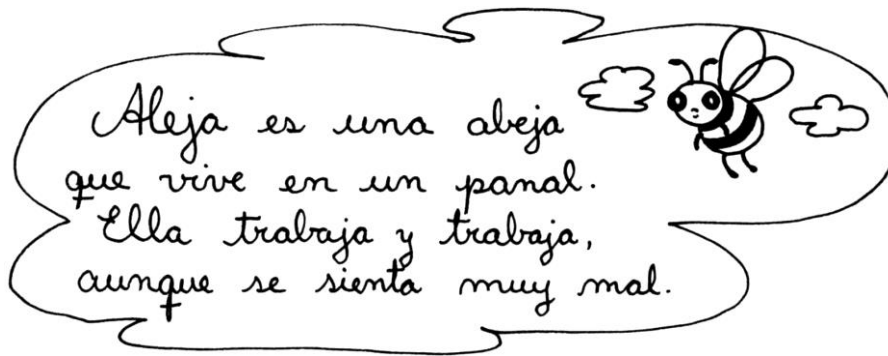 Aleja es una abeja
que vive en un panal.
Ella trabaja y trabaja,
aunque se sienta muy mal.